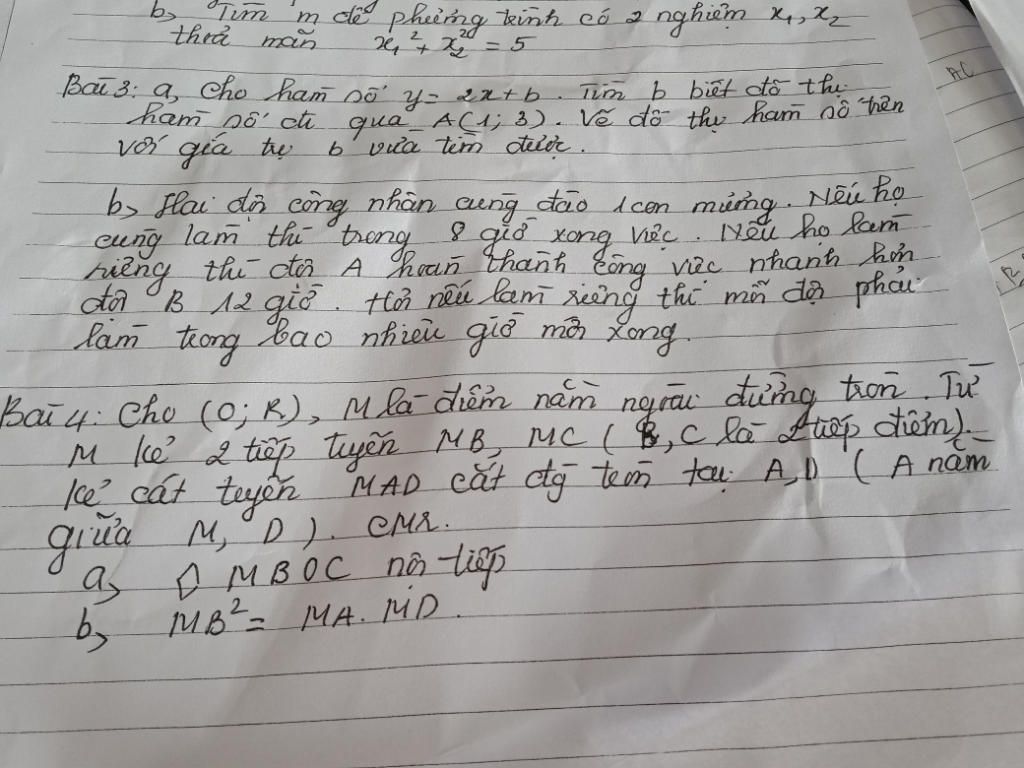 b, Tìm m để phương trình có 2 nghiệm x₁, x₂
thoả mãn x₁² + x₂² = 5
Bài 3: a, Cho hàm số y = 2x + b. Tìm b biết đồ thị
hàm số đi qua A(1; 3). Vẽ đồ thị hàm số trên
với giá trị b vừa tìm được.
b, Hai đội công nhân cùng đào 1 con mương. Nếu họ
cùng làm thì trong 8 giờ xong việc. Nếu họ làm
riêng thì đội A hoàn thành công việc nhanh hơn
đội B 12 giờ. Hỏi nếu làm riêng thì mỗi đội phải
làm trong bao nhiêu giờ mới xong.
Bài 4: Cho (O; R), M là điểm nằm ngoài đường tròn. Từ
M kẻ 2 tiếp tuyến MB, MC ( B, C là 2 tiếp điểm).
Kẻ cát tuyến MAD cắt đg tròn tại A, D ( A nằm
giữa M, D ). CMR.
a, ◊ MBOC nội tiếp
b, MB² = MA. MD.
AC